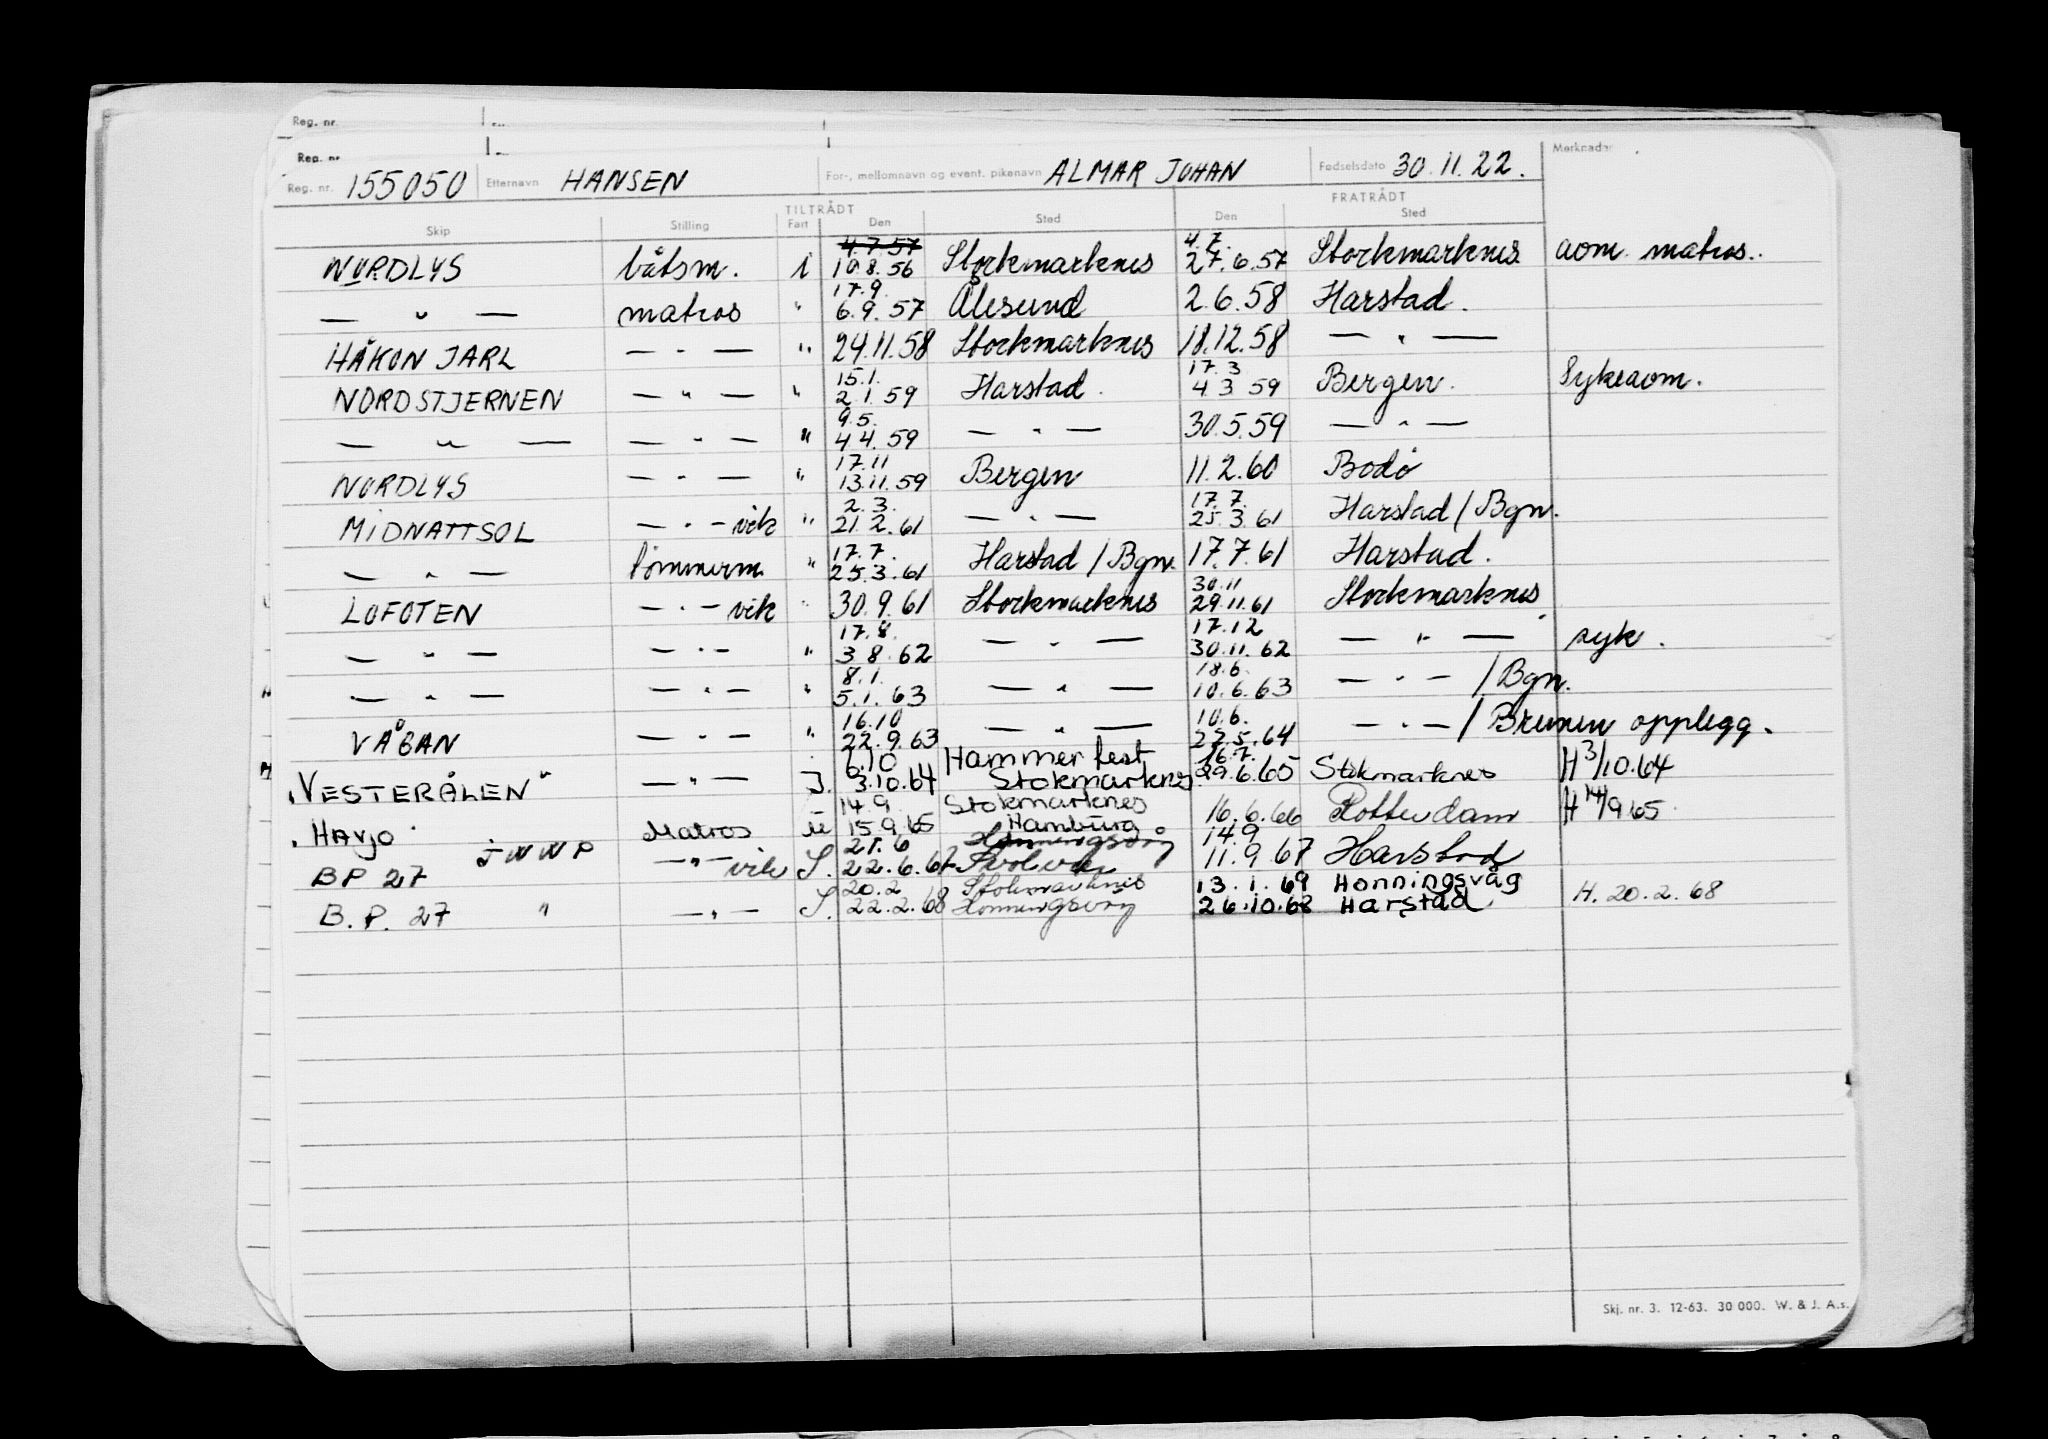 Reg. nr.
Reg. nr.
Reg. nr. 155050 Etternavn HANSEN For-, mellomnavn og event. pikenavn ALMAR JOHAN Fødselsdato 30.11.22. Merknader
TILTRÅDT FRATRÅDT
Skip Stilling Fart Den Sted Den Sted
4.7.57 4.7.
NORDLYS båtsm. i 10.8.56 Stockmarknes 27.6.57 Stockmarknes aom. matros.
17.9.
— " — matros " 6.9.57 Ålesund 2.6.58 Harstad.
HÅKON JARL — " — " 24.11.58 Stockmarknes 18.12.58 — " —
15.1. 17.3
NORDSTJERNEN — " — " 2.1.59 Harstad. 4.3.59 Bergen. Sykeaom.
9.5.
— " — — " — " 4.4.59 — " — 30.5.59 — " —
17.11
NORDLYS — " — " 13.11.59 Bergen 11.2.60 Bodö
2.3. 17.7.
MIDNATTSOL — " — vik " 21.2.61 — " — 25.3.61 Harstad / Bgn.
17.7.
— " — tömmerm " 25.3.61 Harstad / Bgn. 17.7.61 Harstad.
30.11
LOFOTEN — " — vik " 30.9.61 Stockmarknes 29.11.61 Stockmarknes
17.8. 17.12
— " — — " — " 3.8.62 — " — 30.11.62 — " — syk.
8.1. 18.6.
— " — — " — " 5.1.63 — " — 10.6.63 — " — / Bgn.
16.10 10.6.
VÅGAN — " — " 22.9.63 — " — 22.5.64 — " — / Bremen opplegg.
6.10 Hammerfest 16.7.
"VESTERÅLEN" — " — J. 3.10.64 Stokmarknes 29.6.65 Stokmarknes H 3/10.64
14.9 Stokmarknes
"HAVJO" Matros u 15.9.65 Hamburg 16.6.66 Rotterdam H 14/9 65
21.6 Honningsvåg 14.9
BP 27 — " — vik S. 22.6.67 Svolvær 11.9.67 Harstad
20.2 Stokmarknes 13.1.69 Honningsvåg
B.P. 27 " — " — S. 22.2.68 Honningsvåg 26.10.68 Harstad H. 20.2.68
Skj. nr. 3. 12-63. 30 000. W. & J. A.s.